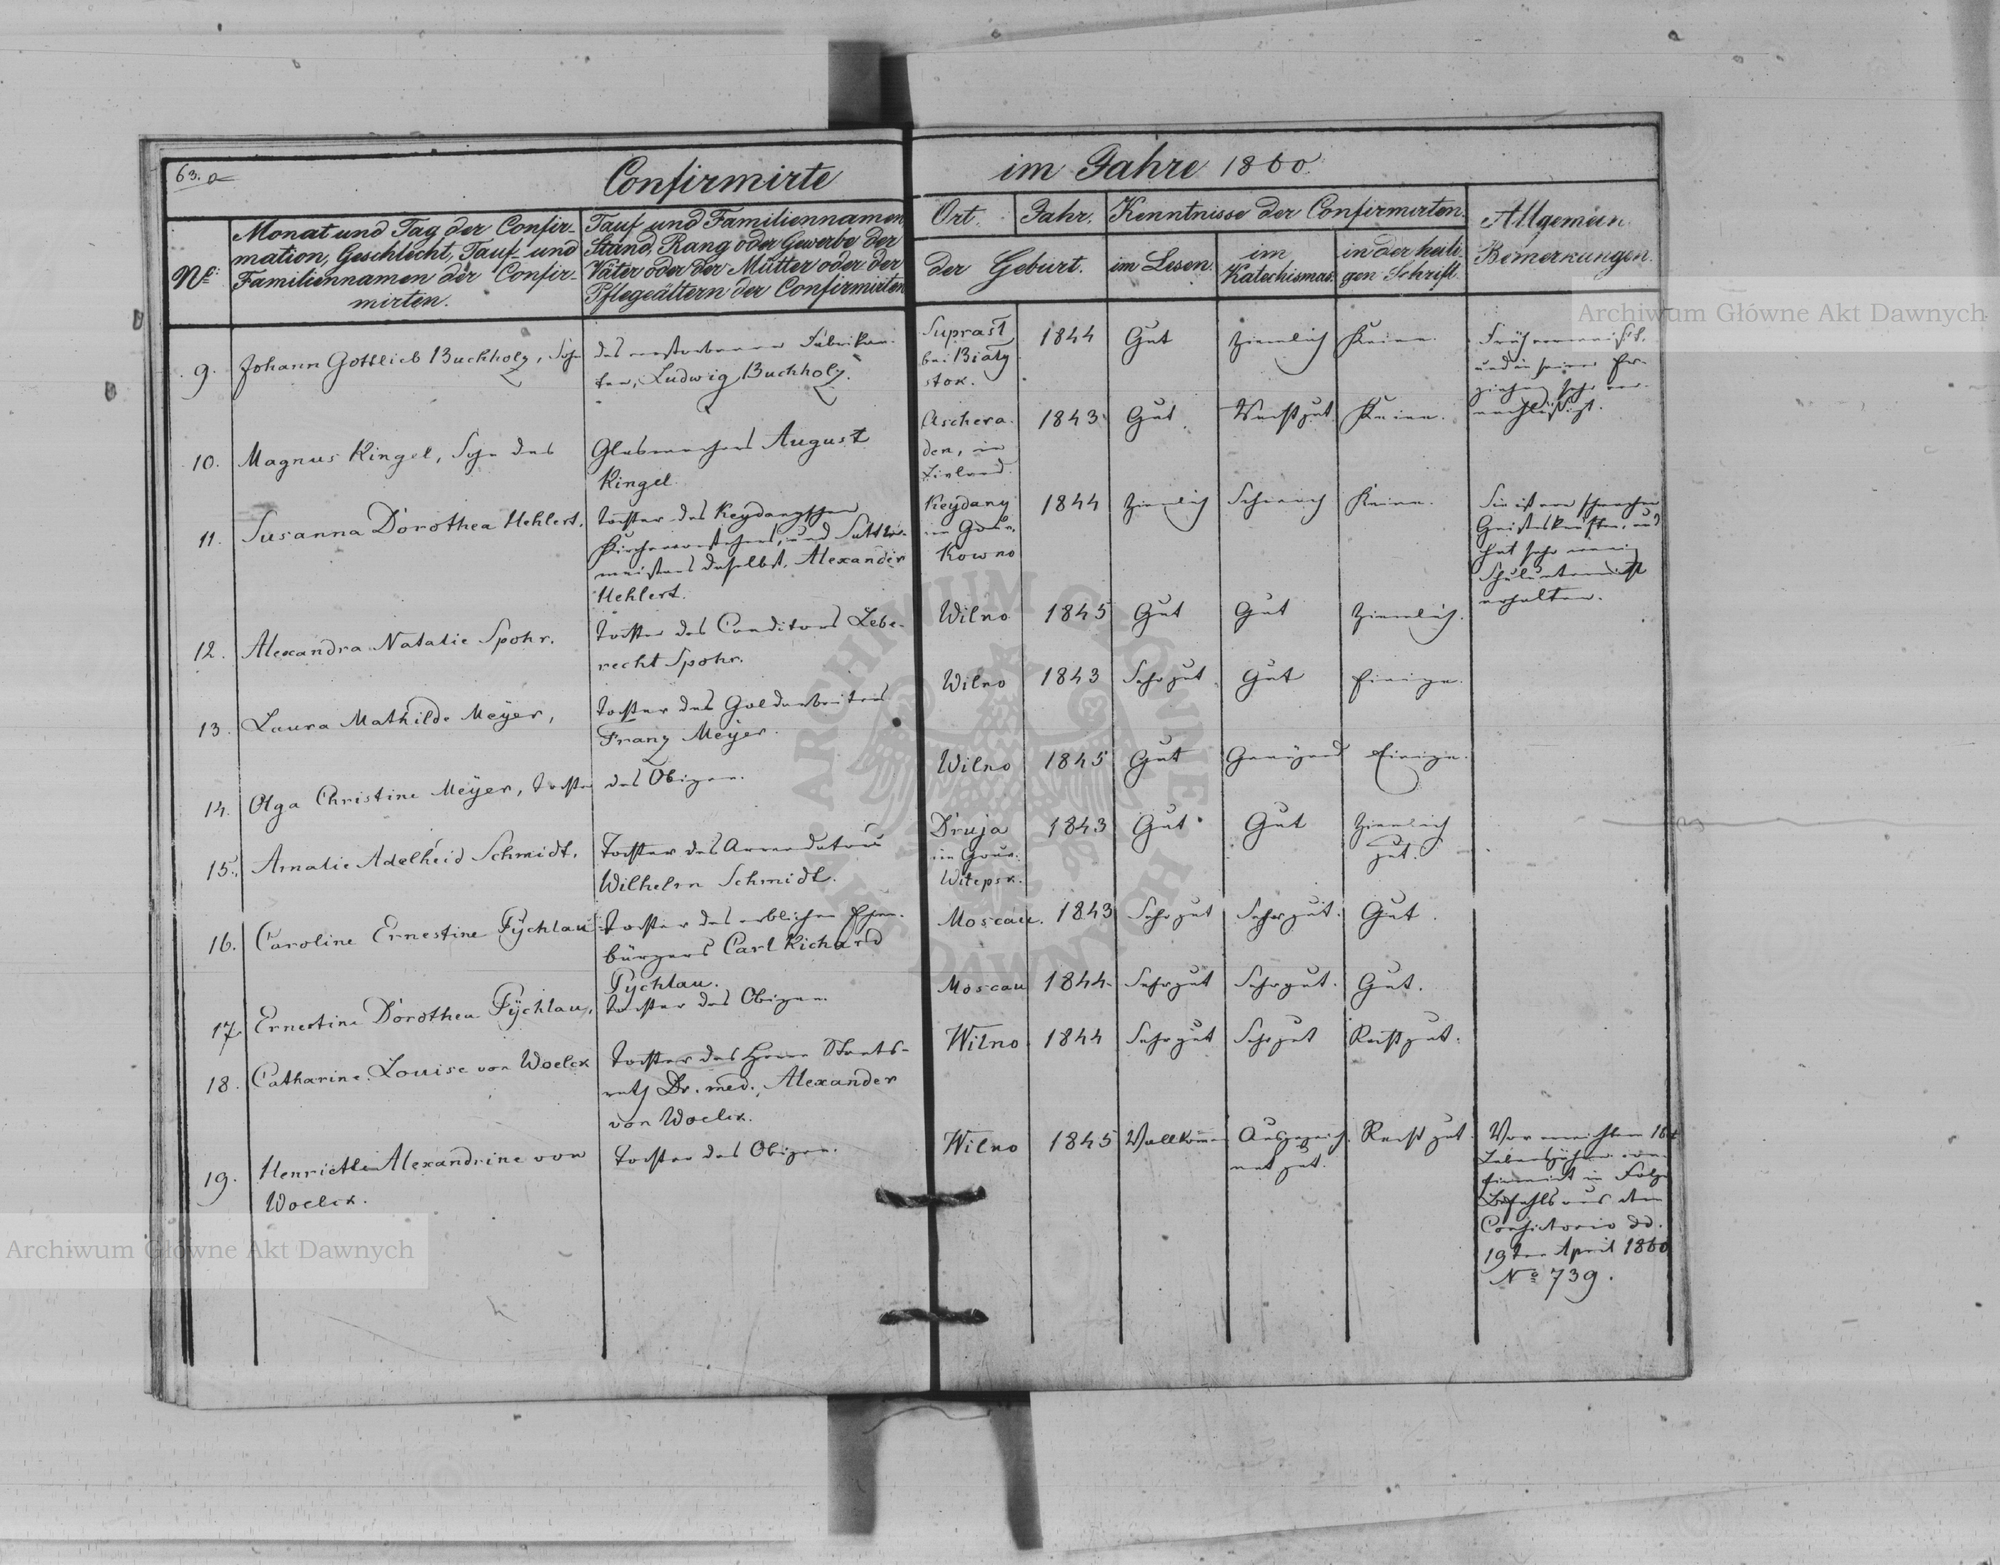 63. a
Confirmirte
im Jahre 1860.
Nº
Monat und Tag der Confir-
mation, Geschlecht, Tauf- und
Familiennamen der Confir-
mirten.
Tauf- und Familiennamen
Stand, Rang oder Gewerbe der
Väter oder der Mütter oder der
Pflegeältern der Confirmirten
Ort.
Jahr.
der Geburt.
Kenntnisse der Confirmirten.
im Lesen.
im
Katechismus.
in der heili-
gen Schrift.
Allgemein.
Bemerkungen.
9. Johann Gottlieb Buchholz, Sohn
des verstorbenen Fabrikan-
ten, Ludwig Buchholz.
Suprasl
bei Bialy
stok.
1844
Gut
Ziemlich
Keine.
Früh verwaist.
und in seiner Er-
ziehung sehr ver-
nachlässigt.
10. Magnus Ringel, Sohn des
Glasmachers August
Ringel.
Aschera-
den, in
Livland.
1843
Gut.
Recht gut.
Keine.
11. Susanna Dorothea Uehlert,
Tochter des Keydanschen
Kirchenvorstehers, und
daselbst, Alexander
Uehlert.
Keydany
im Gouv.
Kowno
1844
Ziemlich
Schwach
Keine.
Sie ist von schwachen
Geisteskräften, und
hat sehr wenig
Schulunterricht
erhalten.
12. Alexandra Natalie Spohr.
Tochter des Conditors Lebe-
recht Spohr.
Wilno
1845
Gut
Gut
Ziemlich.
13. Laura Mathilde Meÿer,
Tochter des Goldarbeiters
Franz Meÿer.
Wilno
1843
Sehr gut.
Gut
Einige.
14. Olga Christine Meÿer, Tochter
des Obigen.
Wilno
1845
Gut
Genügend
Einige.
15. Amalie Adelheid Schmidt,
Tochter des Arrendators
Wilhelm Schmidt.
Druja
im Gouv.
Witepsk.
1843
Gut
Gut
Ziemlich
gut.
16. Caroline Ernestine Pÿchlau
Tochter des erblichen Ehren-
bürgers Carl Richard
Pychlau.
Moscau.
1843
Sehr gut
Sehr gut.
Gut.
17. Ernestine Dorothea Pÿchlau,
Tochter des Obigen.
Moscau
1844
Sehr gut
Sehr gut.
Gut.
18. Catharine Louise von Woelck
Tochter des Herrn Staats-
rath Dr. med., Alexander
von Woelck.
Wilno
1844
Sehr gut
Sehr gut
Recht gut.
19. Henriette Alexandrine von
Woelck.
Tochter des Obigen.
Wilno
1845
Vollkommen
Ausgezeich-
net gut.
Recht gut.
Vor erreichtem 16t
Lebensjahre con-
firmirt in Folge
Befehls aus dem
Consistorio dd.
19ten April 1860
Nº 739.
Archiwum Główne Akt Dawnych
Archiwum Główne Akt Dawnych
ARCHIWUM GŁÓWNE AKT DAWNYCH